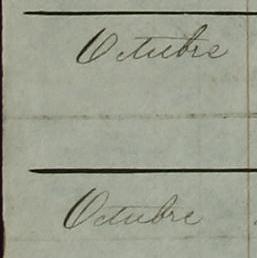 Octubre
Octubre